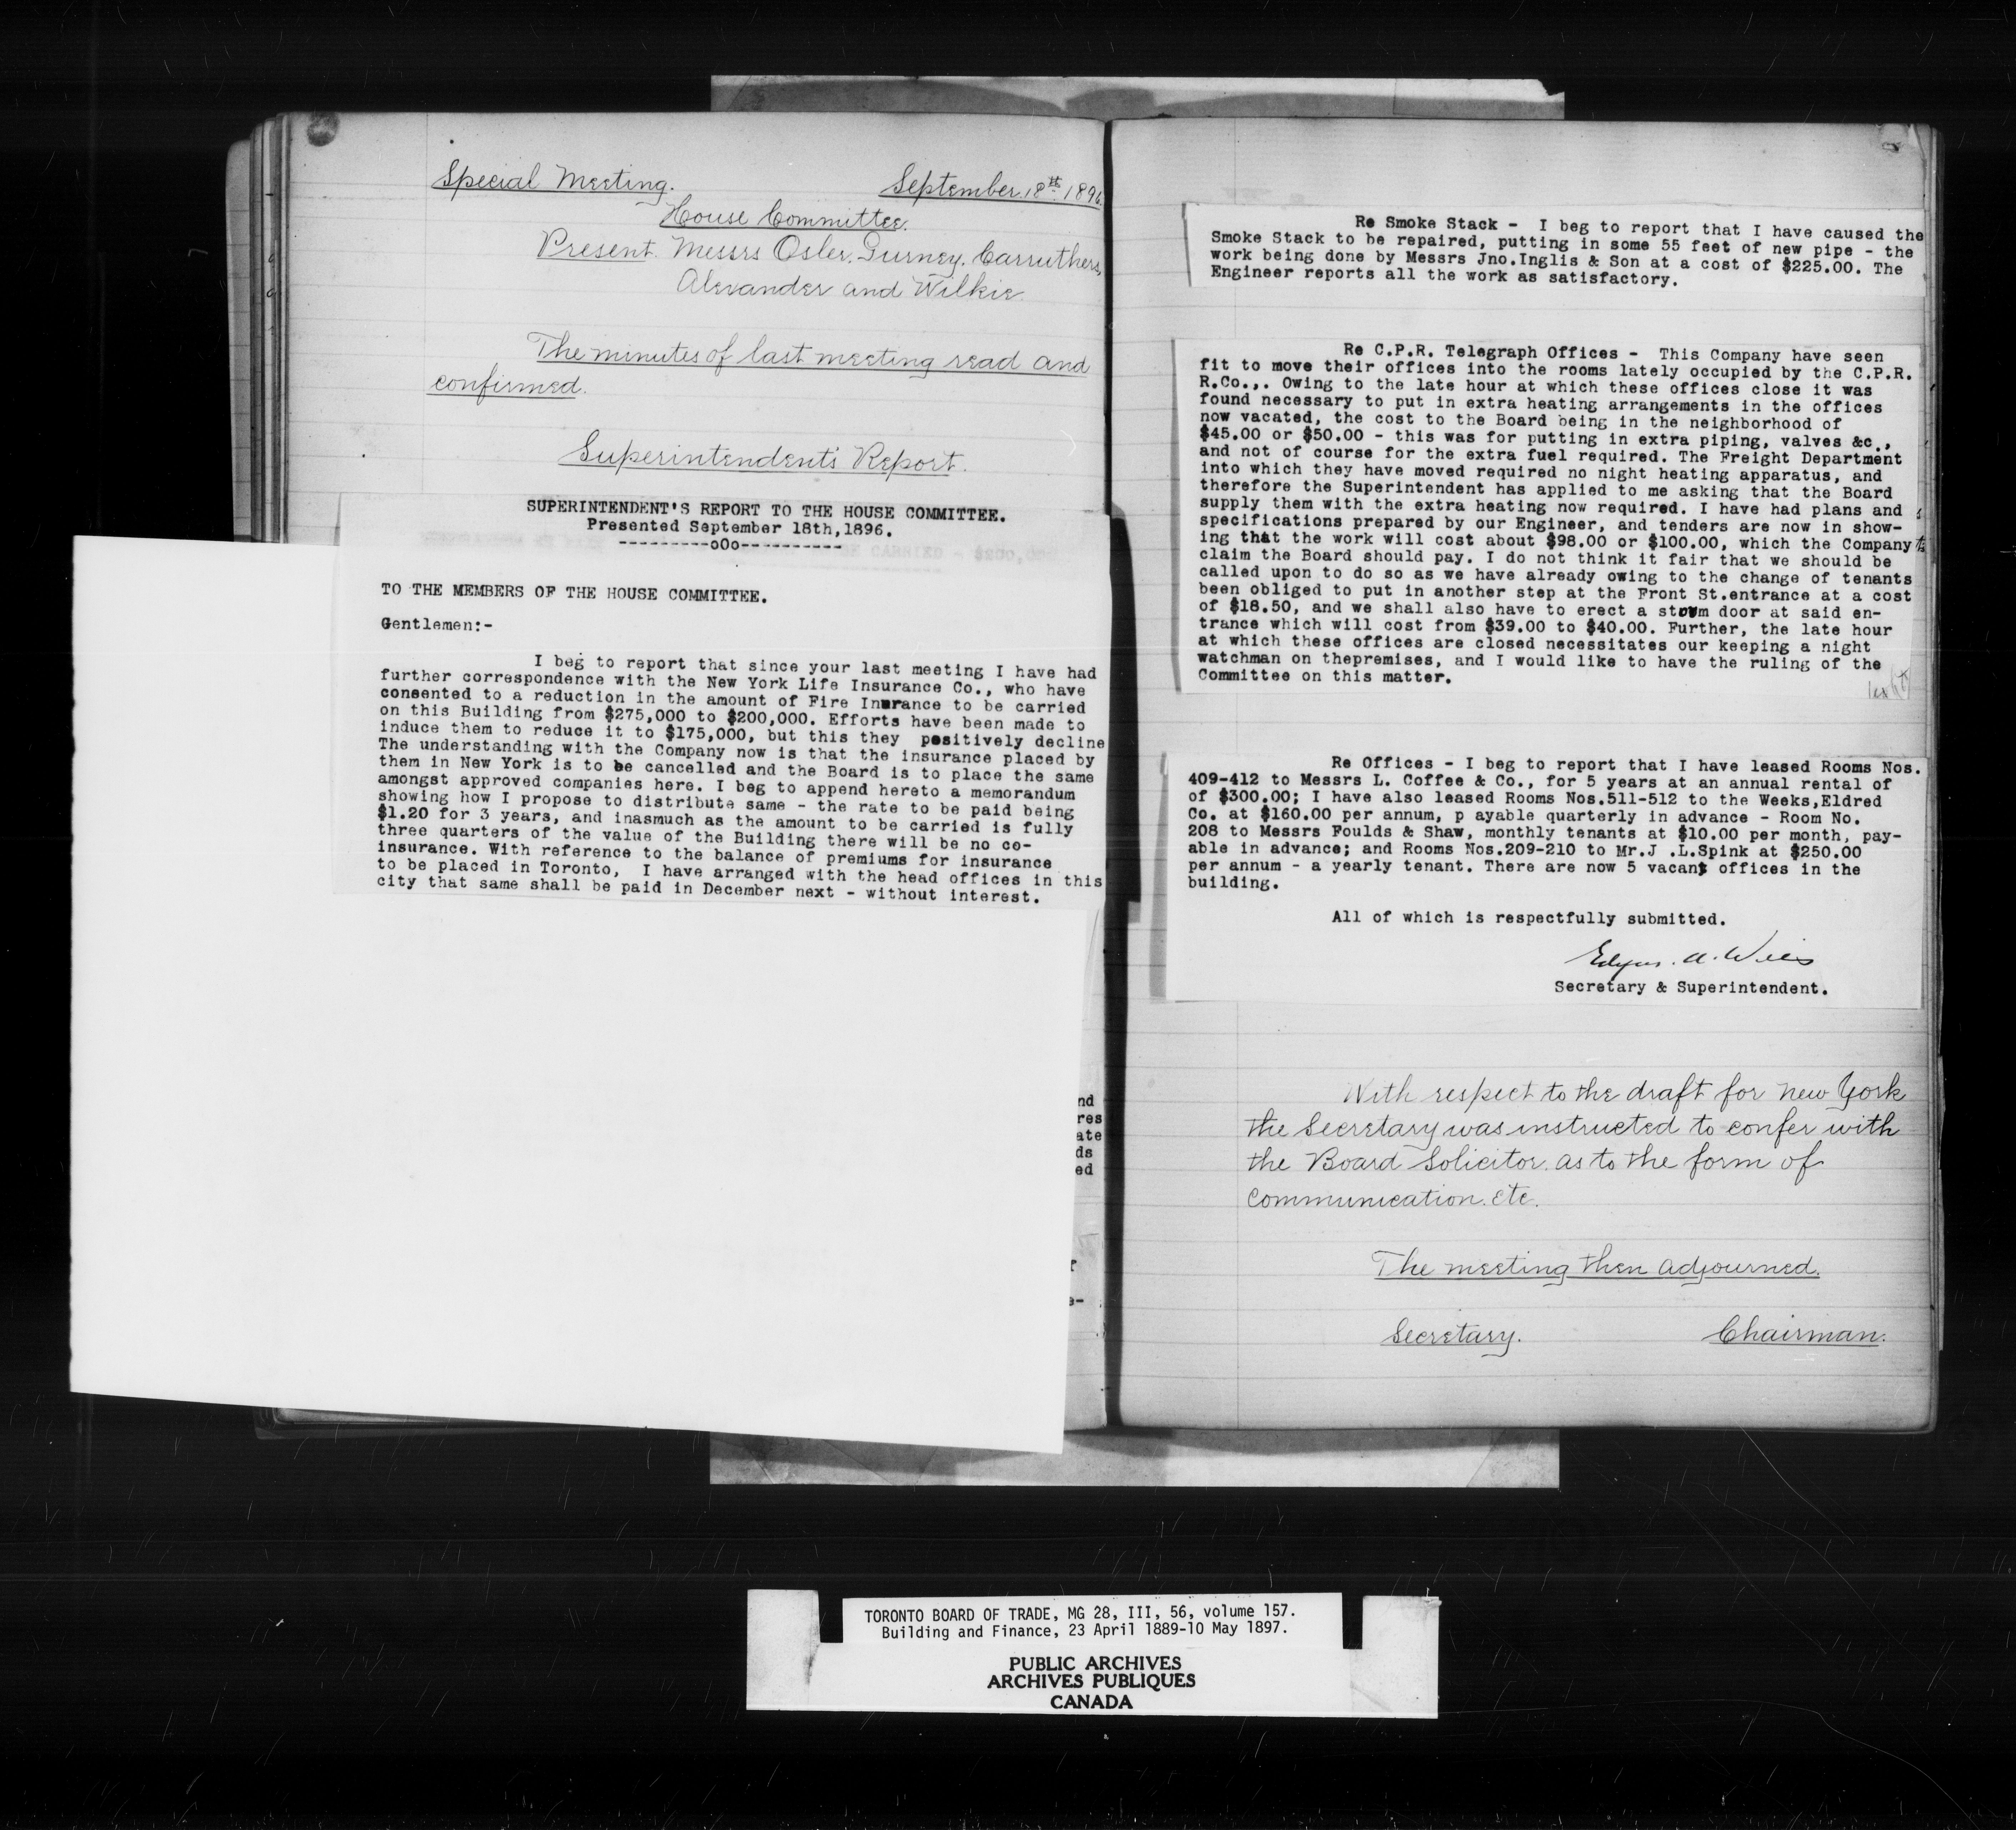 Special Meeting. September 18th 1896.
House Committee.
Present. Messrs Osler. Gurney. Carruthers,
Alexander and Wilkie.
The minutes of last meeting read and
confirmed.
Superintendent's Report.
SUPERINTENDENT'S REPORT TO THE HOUSE COMMITTEE.
Presented September 18th,1896.
---------oOo----------
TO THE MEMBERS OF THE HOUSE COMMITTEE.
Gentlemen:-
I beg to report that since your last meeting I have had
further correspondence with the New York Life Insurance Co., who have
consented to a reduction in the amount of Fire Inurance to be carried
on this Building from $275,000 to $200,000. Efforts have been made to
induce them to reduce it to $175,000, but this they positively decline
The understanding with the Company now is that the insurance placed by
them in New York is to be cancelled and the Board is to place the same
amongst approved companies here. I beg to append hereto a memorandum
showing how I propose to distribute same - the rate to be paid being
$1.20 for 3 years, and inasmuch as the amount to be carried is fully
three quarters of the value of the Building there will be no co-
insurance. With reference to the balance of premiums for insurance
to be placed in Toronto, I have arranged with the head offices in this
city that same shall be paid in December next - without interest.
nd
res
ate
ds
ed
e-
Re Smoke Stack - I beg to report that I have caused the
Smoke Stack to be repaired, putting in some 55 feet of new pipe - the
work being done by Messrs Jno.Inglis & Son at a cost of $225.00. The
Engineer reports all the work as satisfactory.
Re C.P.R. Telegraph Offices - This Company have seen
fit to move their offices into the rooms lately occupied by the C.P.R.
R.Co.,. Owing to the late hour at which these offices close it was
found necessary to put in extra heating arrangements in the offices
now vacated, the cost to the Board being in the neighborhood of
$45.00 or $50.00 - this was for putting in extra piping, valves &c.,
and not of course for the extra fuel required. The Freight Department
into which they have moved required no night heating apparatus, and
therefore the Superintendent has applied to me asking that the Board
supply them with the extra heating now required. I have had plans and
specifications prepared by our Engineer, and tenders are now in show-
ing that the work will cost about $98.00 or $100.00, which the Company
claim the Board should pay. I do not think it fair that we should be
called upon to do so as we have already owing to the change of tenants
been obliged to put in another step at the Front St.entrance at a cost
of $18.50, and we shall also have to erect a storm door at said en-
trance which will cost from $39.00 to $40.00. Further, the late hour
at which these offices are closed necessitates our keeping a night
watchman on thepremises, and I would like to have the ruling of the
Committee on this matter.
Re Offices - I beg to report that I have leased Rooms Nos.
409-412 to Messrs L. Coffee & Co., for 5 years at an annual rental of
of $300.00; I have also leased Rooms Nos.511-512 to the Weeks,Eldred
Co. at $160.00 per annum, p ayable quarterly in advance - Room No.
208 to Messrs Foulds & Shaw, monthly tenants at $10.00 per month, pay-
able in advance; and Rooms Nos.209-210 to Mr.J .L.Spink at $250.00
per annum - a yearly tenant. There are now 5 vacant offices in the
building.
All of which is respectfully submitted.
Edgar. A. Wills
Secretary & Superintendent.
With respect to the draft for New York
the Secretary was instructed to confer with
the Board Solicitor. as to the form of
communication. etc.
The meeting then adjourned.
Secretary. Chairman.
TORONTO BOARD OF TRADE, MG 28, III, 56, volume 157.
Building and Finance, 23 April 1889-10 May 1897.
PUBLIC ARCHIVES
ARCHIVES PUBLIQUES
CANADA